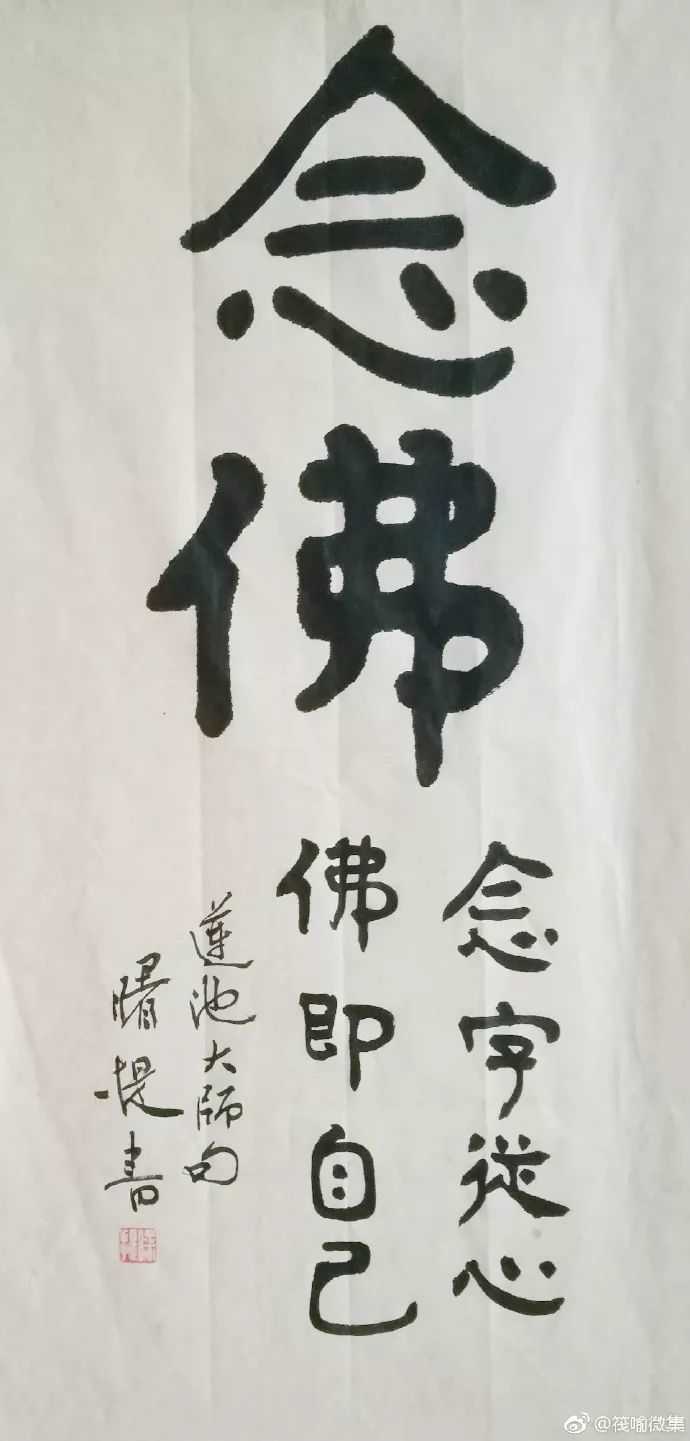 念佛
念字從心
佛即自己
蓮池大师句
曙提書
@筏喻微集